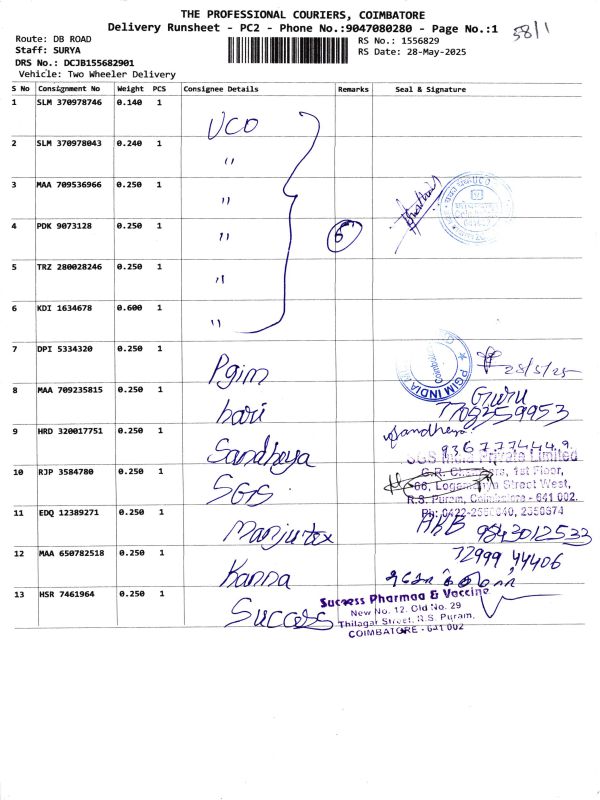 THE PROFESSIONAL COURIERS, COIMBATORE
Delivery Runsheet - PC2 - Phone No.:9047080280 - Page No.:1
58/1
Route: DB ROAD
RS No.: 1556829
Staff: SURYA
RS Date: 28-May-2025
DRS No.: DCJB155682901
Vehicle: Two Wheeler Delivery
S No Consignment No Weight PCS Consignee Details Remarks Seal & Signature
1 SLM 370978746 0.140 1 UCO
2 SLM 370978043 0.240 1 "
3 MAA 709536966 0.250 1 "
4 PDK 9073128 0.250 1 " 6
5 TRZ 280028246 0.250 1 "
6 KDI 1634678 0.600 1 "
7 DPI 5334320 0.250 1 Pgim
PGIM INDIA
Coimbatore
28/5/25
8 MAA 709235815 0.250 1 hari
Guru
7702559953
9 HRD 320017751 0.250 1 Sandheya
Sandheya
9367774449
10 RJP 3584780 0.250 1 SGS
SGS India Private Limited
G.R. Chambers, 1st Floor,
R.S. Puram, Coimbatore - 641 002.
11 EDQ 12389271 0.250 1 Manjutex
9843012533
12 MAA 650782518 0.250 1 Kanna
72999 44406
13 HSR 7461964 0.250 1 Success
Success Pharmaa & Vaccine
New No. 12, Old No. 29
Thilagar Street, R.S. Puram,
COIMBATORE - 641 002